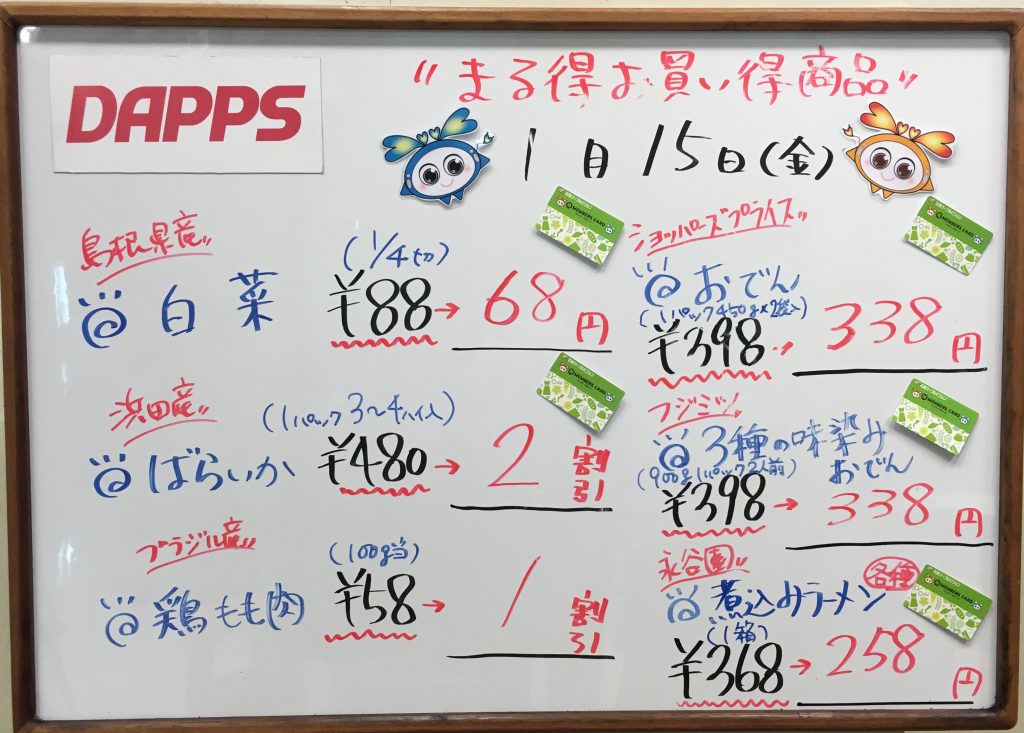 DAPPS
"まる得お買い得商品"
1月15日(金)
島根県産"
白菜
(1/4切)
¥88→68円
浜田産"
ばらいか
(1パック3〜4ハイ入)
¥480→2割引
ブラジル産"
鶏もも肉
(100g当)
¥58→1割引
ショッパーズプライス
おでん
(1パック450g×2袋入)
¥398→338円
フジミツ
3種の味染み
おでん
(900g1パック2人前)
¥398→338円
永谷園
各種
煮込みラーメン
(1箱)
¥368→258円
MEMBERS CARD
MEMBERS CARD
MEMBERS CARD
MEMBERS CARD
MEMBERS CARD